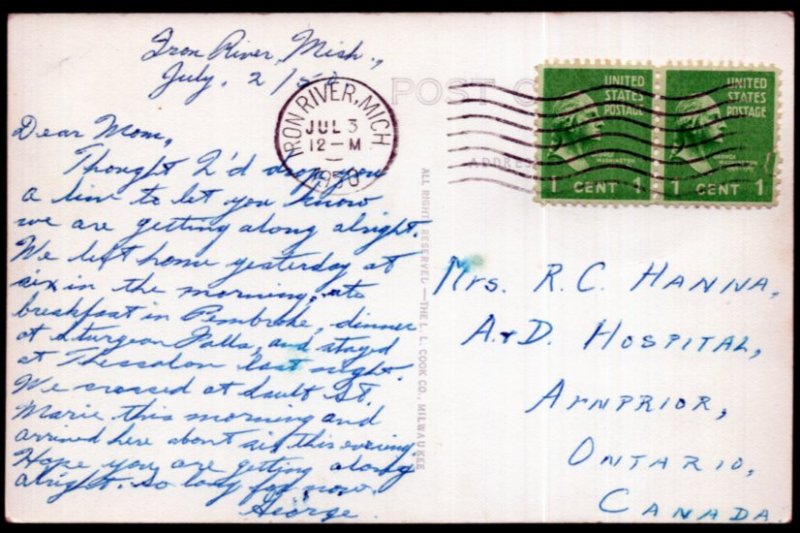 Iron River, Mich.,
July, 2/50
Dear Mom,
Thought I'd drop you
a line to let you know
we are getting along alright.
We left home yesterday at
six in the morning, ate
breakfast in Pembroke, dinner
at Sturgeon Falls, and stayed
at Thessalon last night.
We crossed at Sault St.
Marie this morning and
arrived here about six this evening
Hope you are getting along
alright. So long for now.
George.
IRON RIVER, MICH
JUL 3
12-M
1950
POST C
ADDRESS
ALL RIGHTS RESERVED — THE L. L. COOK CO., MILWAUKEE
UNITED
STATES
POSTAGE
WASHINGTON
1 CENT 1
UNITED
STATES
POSTAGE
1 CENT 1
Mrs. R. C. HANNA,
A & D. HOSPITAL,
ARNPRIOR,
ONTARIO,
CANADA.